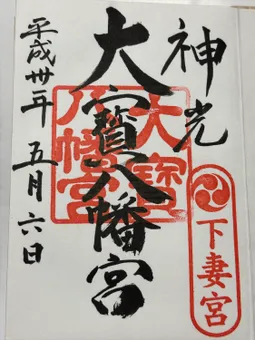 神光
大寳八幡宮
平成卅年五月六日
大寳
八幡宮
下妻宮